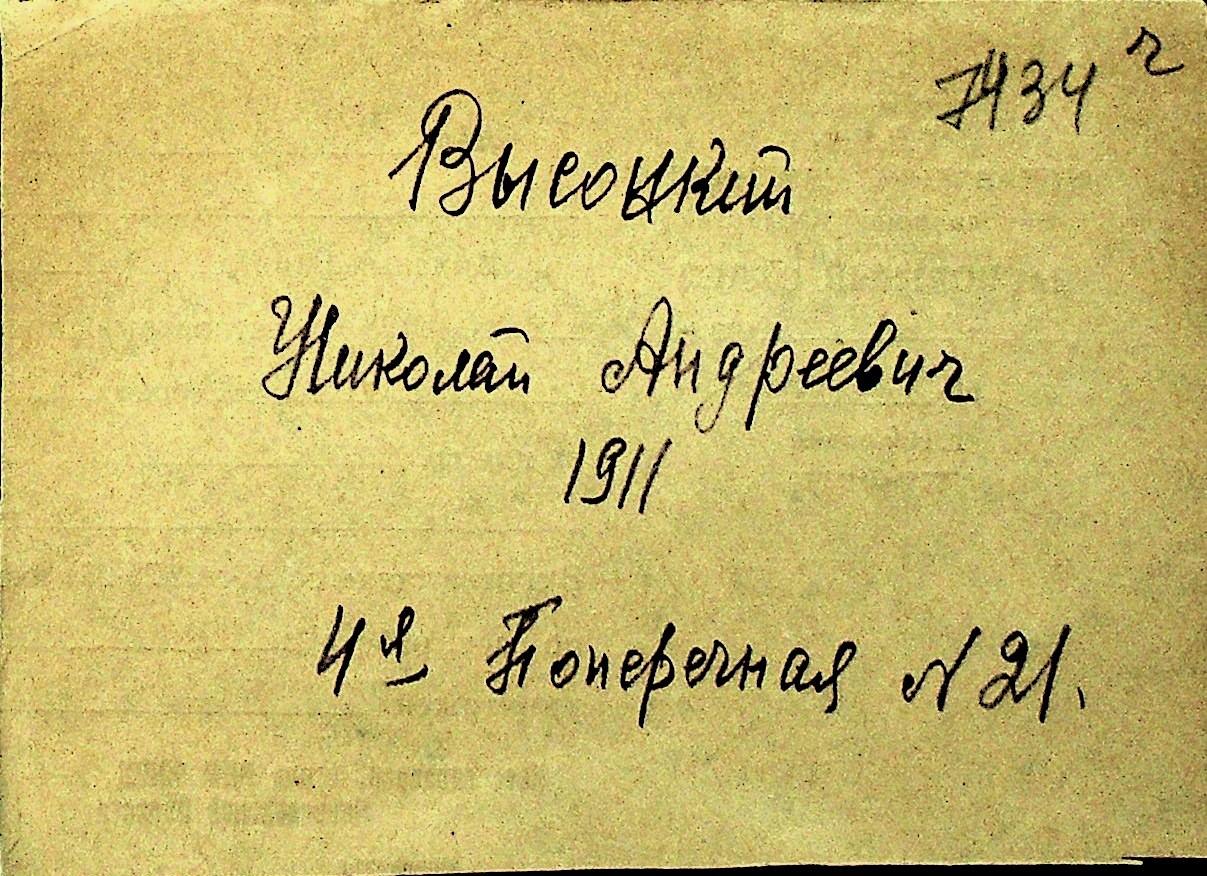 7434 ч
Высоцкий
Николай Андреевич
1911
4я Поперечная N 21.